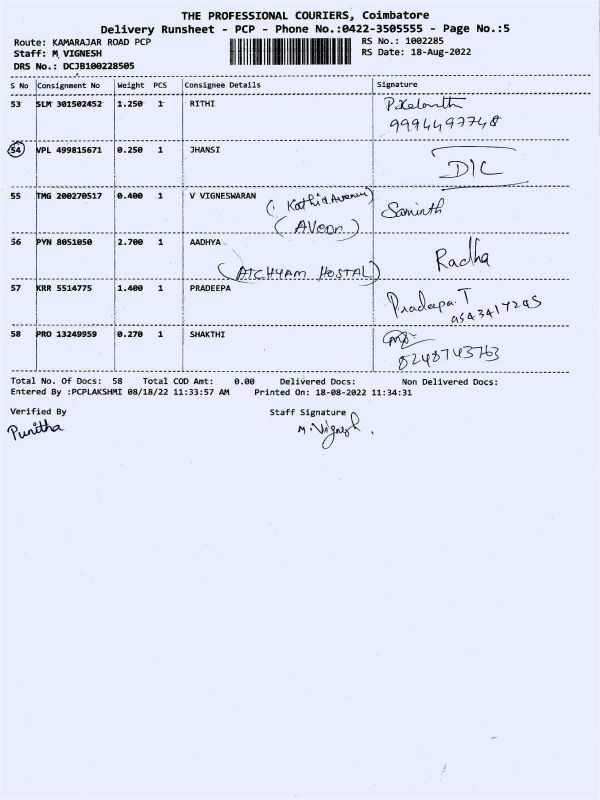 THE PROFESSIONAL COURIERS, Coimbatore
Delivery Runsheet - PCP - Phone No.:0422-3505555 - Page No.:5
Route: KAMARAJAR ROAD PCP
RS No.: 1002285
Staff: M VIGNESH
RS Date: 18-Aug-2022
DRS No.: DCJB100228505
S No Consignment No Weight PCS Consignee Details Signature
53 SLM 301502452 1.250 1 RITHI
9994497748
54 VPL 499815671 0.250 1 JHANSI D/C
55 TMG 200270517 0.400 1 V VIGNESWARAN
(Aveon)
56 PYN 8051050 2.700 1 AADHYA Radha
(ATCHYAM HOSTAL)
57 KRR 5514775 1.400 1 PRADEEPA Pradeepa.T
58 PRO 13249959 0.270 1 SHAKTHI
8248743763
Total No. Of Docs: 58 Total COD Amt: 0.00 Delivered Docs: Non Delivered Docs:
Entered By :PCPLAKSHMI 08/18/22 11:33:57 AM Printed On: 18-08-2022 11:34:31
Verified By Staff Signature
Punitha M. Vignesh.